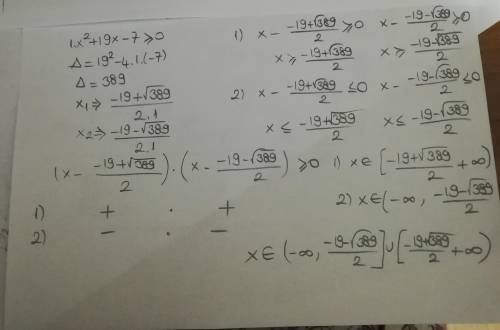 1.x²+19x-7⩾0
Δ=19²-4.1.(-7)
Δ=389
x₁⇒ (-19+√389)/2.1
x₂⇒ (-19-√389)/2.1
(x - (-19+√389)/2) · (x - (-19-√389)/2) ⩾0
1) + . +
2) - . -
1) x - (-19+√389)/2 ⩾0 x - (-19-√389)/2 ⩾0
x⩾ (-19+√389)/2 x⩾ (-19-√389)/2
2) x - (-19+√389)/2 ≤0 x - (-19-√389)/2 ≤0
x≤ (-19+√389)/2 x≤ (-19-√389)/2
1) x∈[(-19+√389)/2 +∞)
2) x∈(-∞, (-19-√389)/2
x∈(-∞, (-19-√389)/2]∪[(-19+√389)/2 +∞)